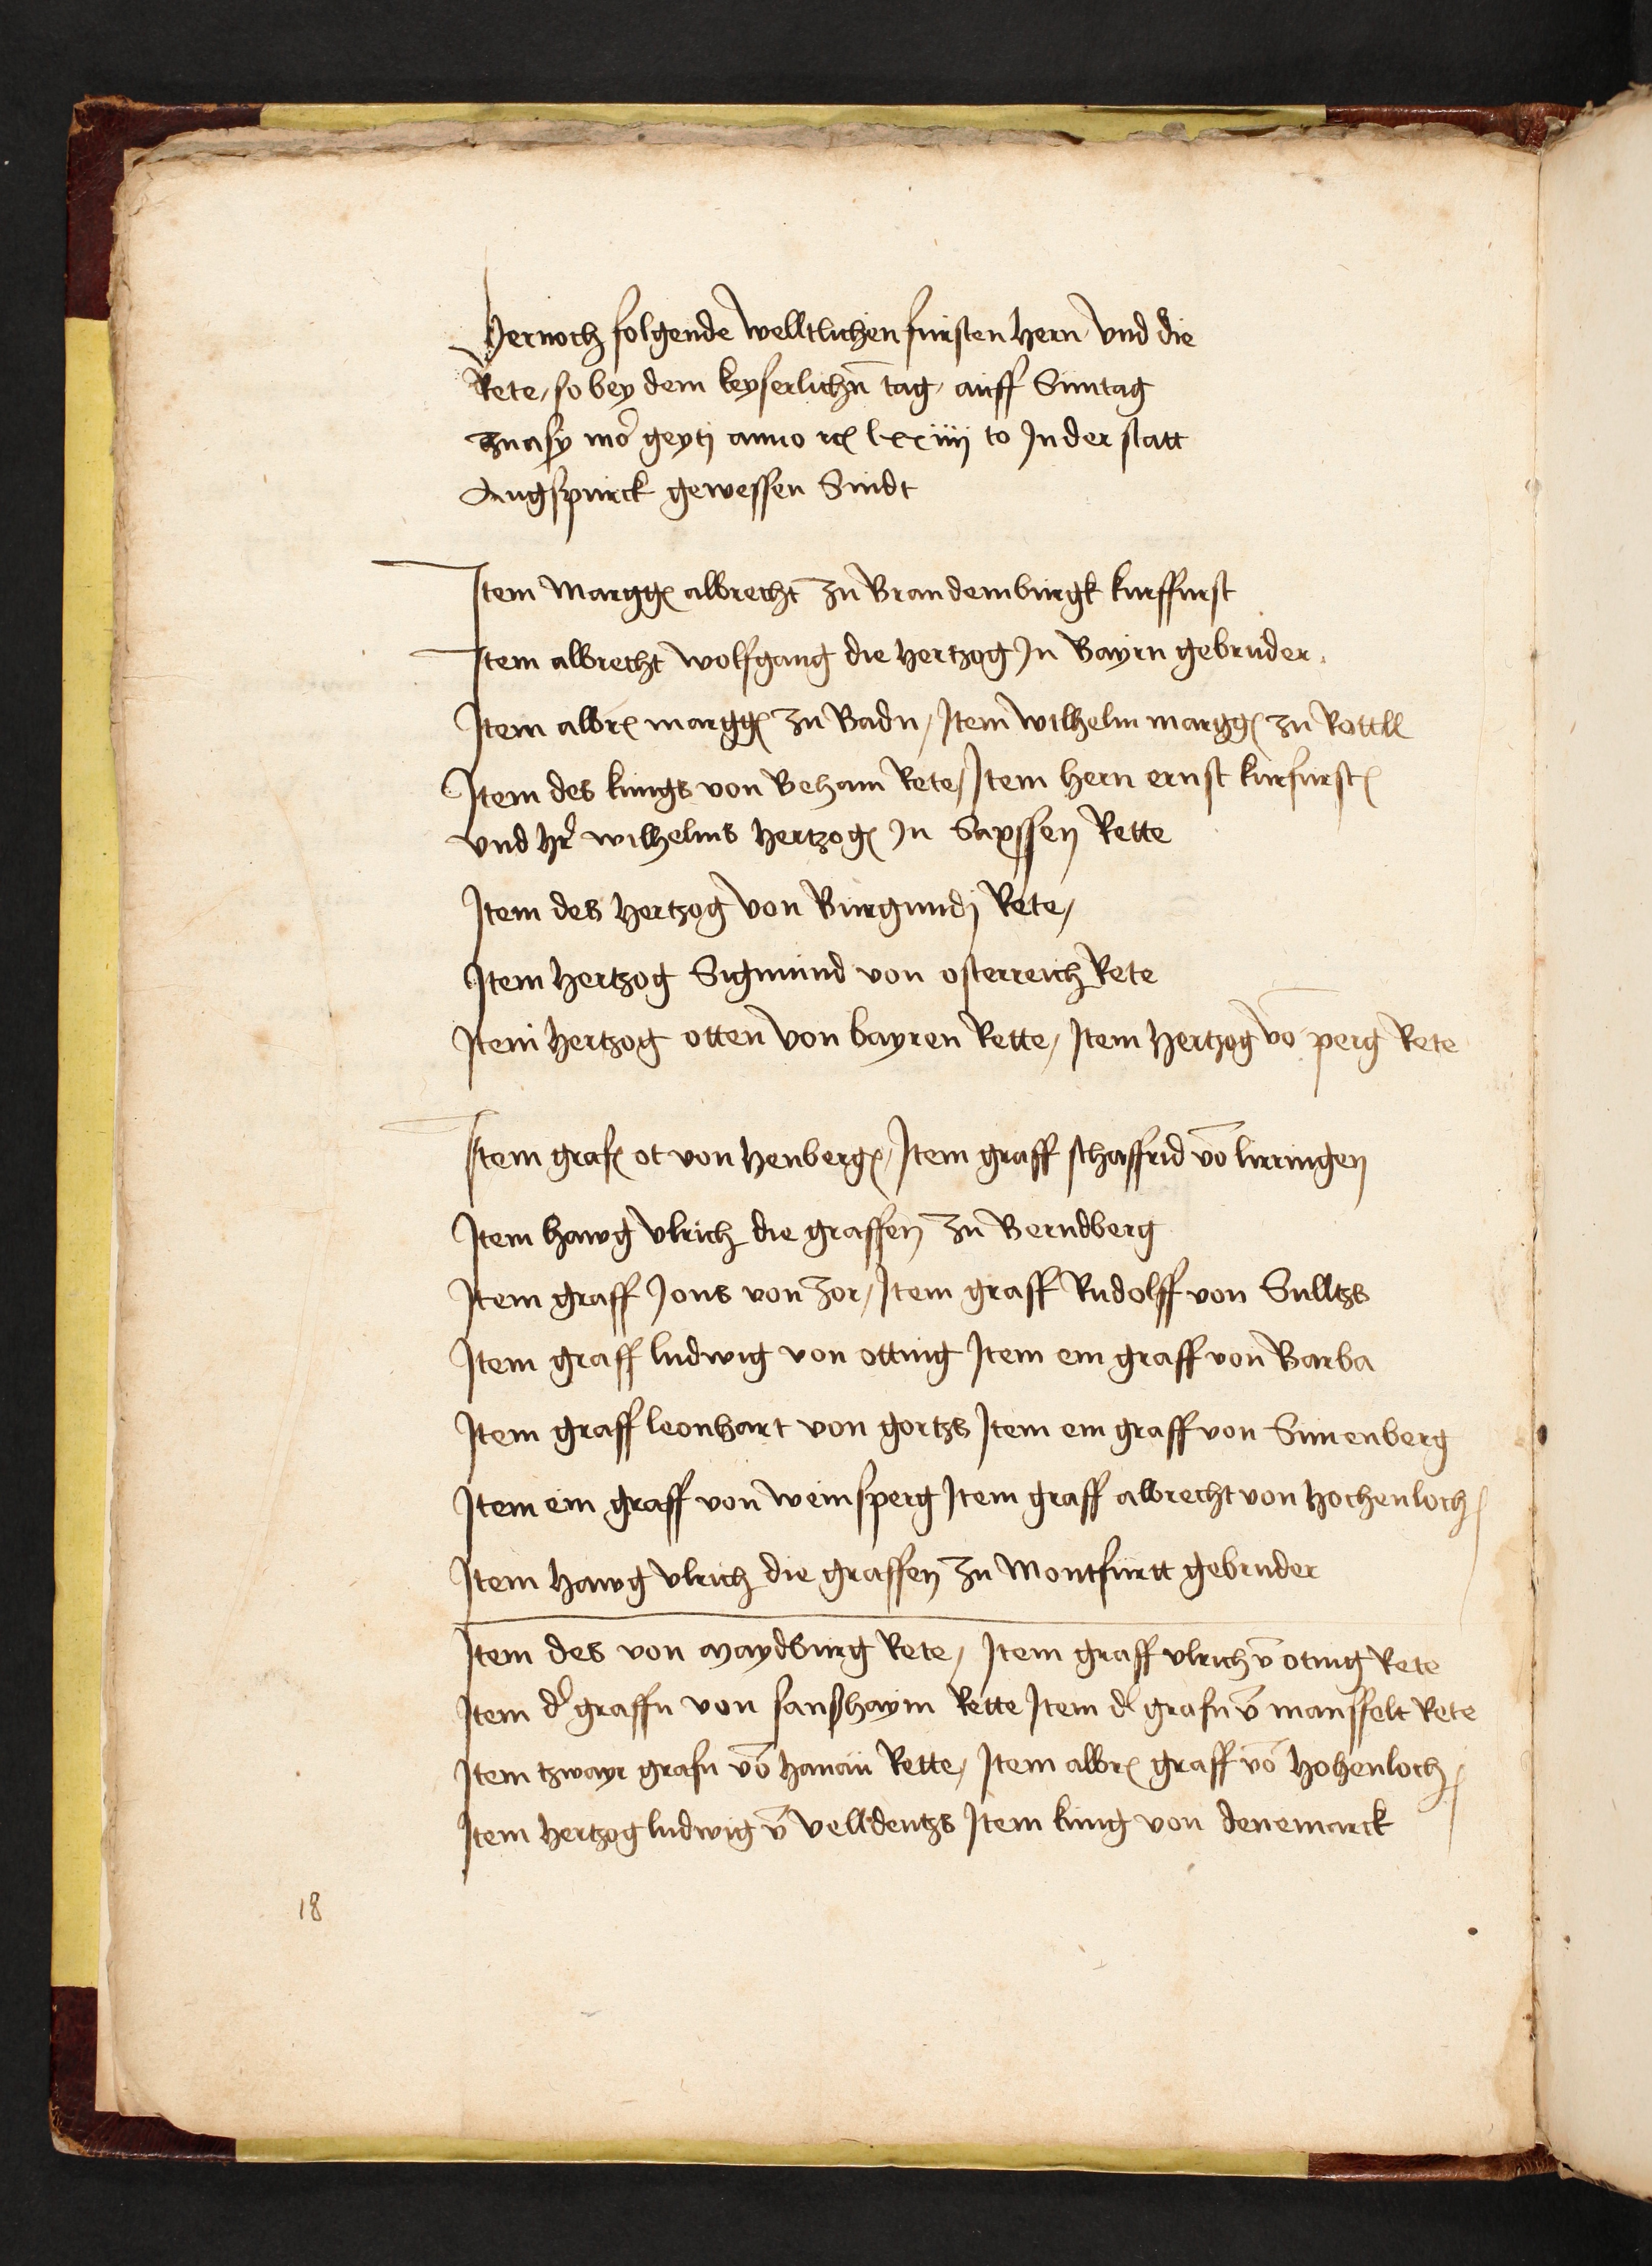 Hernoch folgende welltlichen fursten hern vnd die
Rete, so bey dem keyserlichn̄ tag, auff Suntag
anno lxxiiii to In der statt
Augspurck gewessen Sindt
Item Margg albrecht zu Brandemburgk kurffurst
Item albrecht wolfgang die hertzog In Bayrn gebruder.
Item albr margg zu Badn, Item wilhelm margg zu Rottll
Item des kungs von Beham Rete, Item hern ernst kurfurst
vnd hr wilhelms hertzog In Saxssen Rette
Item des hertzog von Burgundj Rete,
Item hertzog Sigmund von osterreich Rete
Item hertzog otten von bayren Rette, Item hertzog vō perg Rete
Item graf ot von henberg, Item graff schaffrid vō
Item hawg vlrich die graffen zu Berndberg
Item graff Jons von zor, Item graff Rudolff von Sulltzs
Item graff ludwig von otting Item ein graff von Barba
Item graff leonhart von gortzs Item ein graff von Sunenberg
Item ein graff von weinsperg Item graff albrecht von hochenloch
Item hawg vlrich die graffen zu Montfurtt gebruder
Item des von maydburg Rete, Item graff vlrich v̄ oting Rete
Item d graffn von sanßhaym Rette Item d grafn v̄ mansfelt Rete
Item tzwayr grafn vō hanau Rette, Item albr graff vō hohenloch
Item hertzog ludwig v̄ velldentzs Item kung von denemarck
18